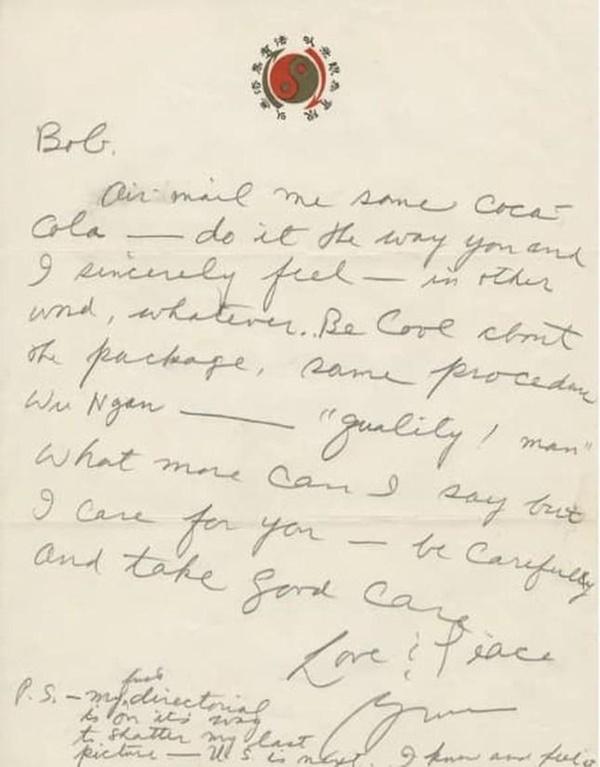 以無法為有法 以無限為有限
Bob.
Air mail me some Coca-
Cola — do it the way you and
I sincerely feel — in other
word, whatever.. Be Cool about
the package, same procedure
Wu Ngan —— "quality! man"
What more can I say but
I care for you — be carefully
and take good care
Love & Peace
first
P.S. – my directorial
is on it's way
to shatter my last
picture — U.S. is next. I know and feel